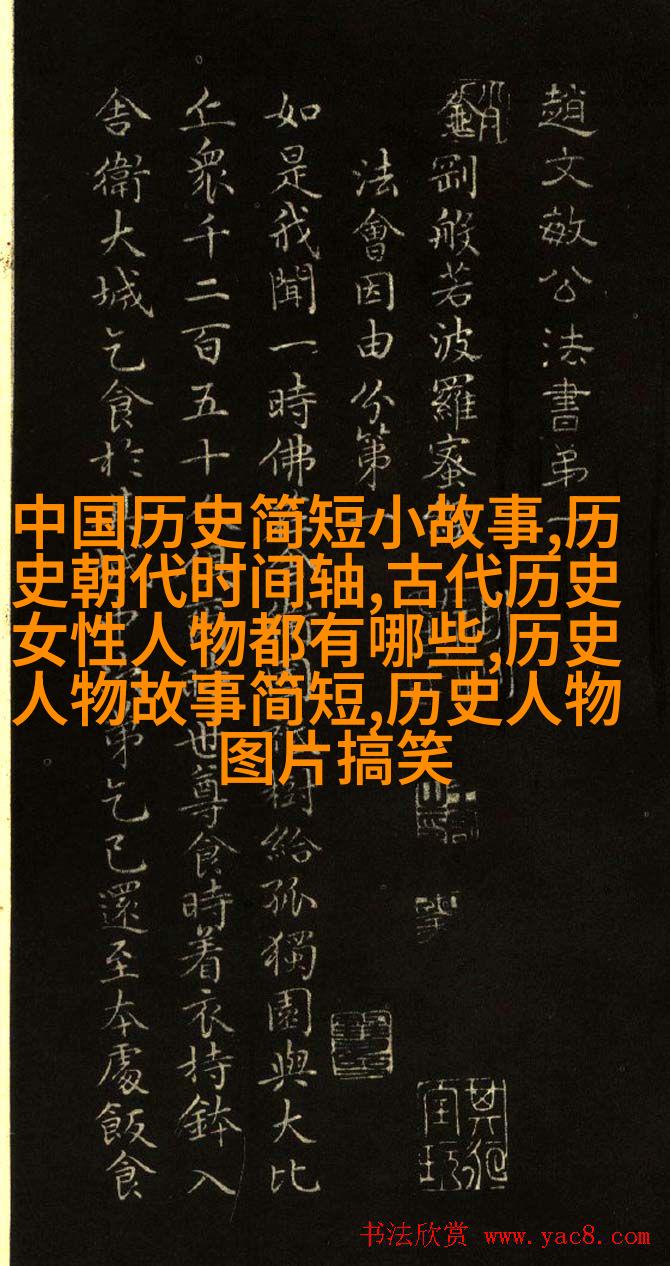 趙文敏公法書弟一
金剛般若波羅蜜
法會因由分第
如是我聞一時佛樹給孤獨園與大比
丘衆千二百五十世尊食時着衣持鉢入
舍衛大城乞食於其第乞已還至本處飯食
中国历史简短小故事,历
史朝代时间轴,古代历史
女性人物都有哪些,历史
人物故事简短,历史人物
图片搞笑
书法欣赏 www.yac8.com